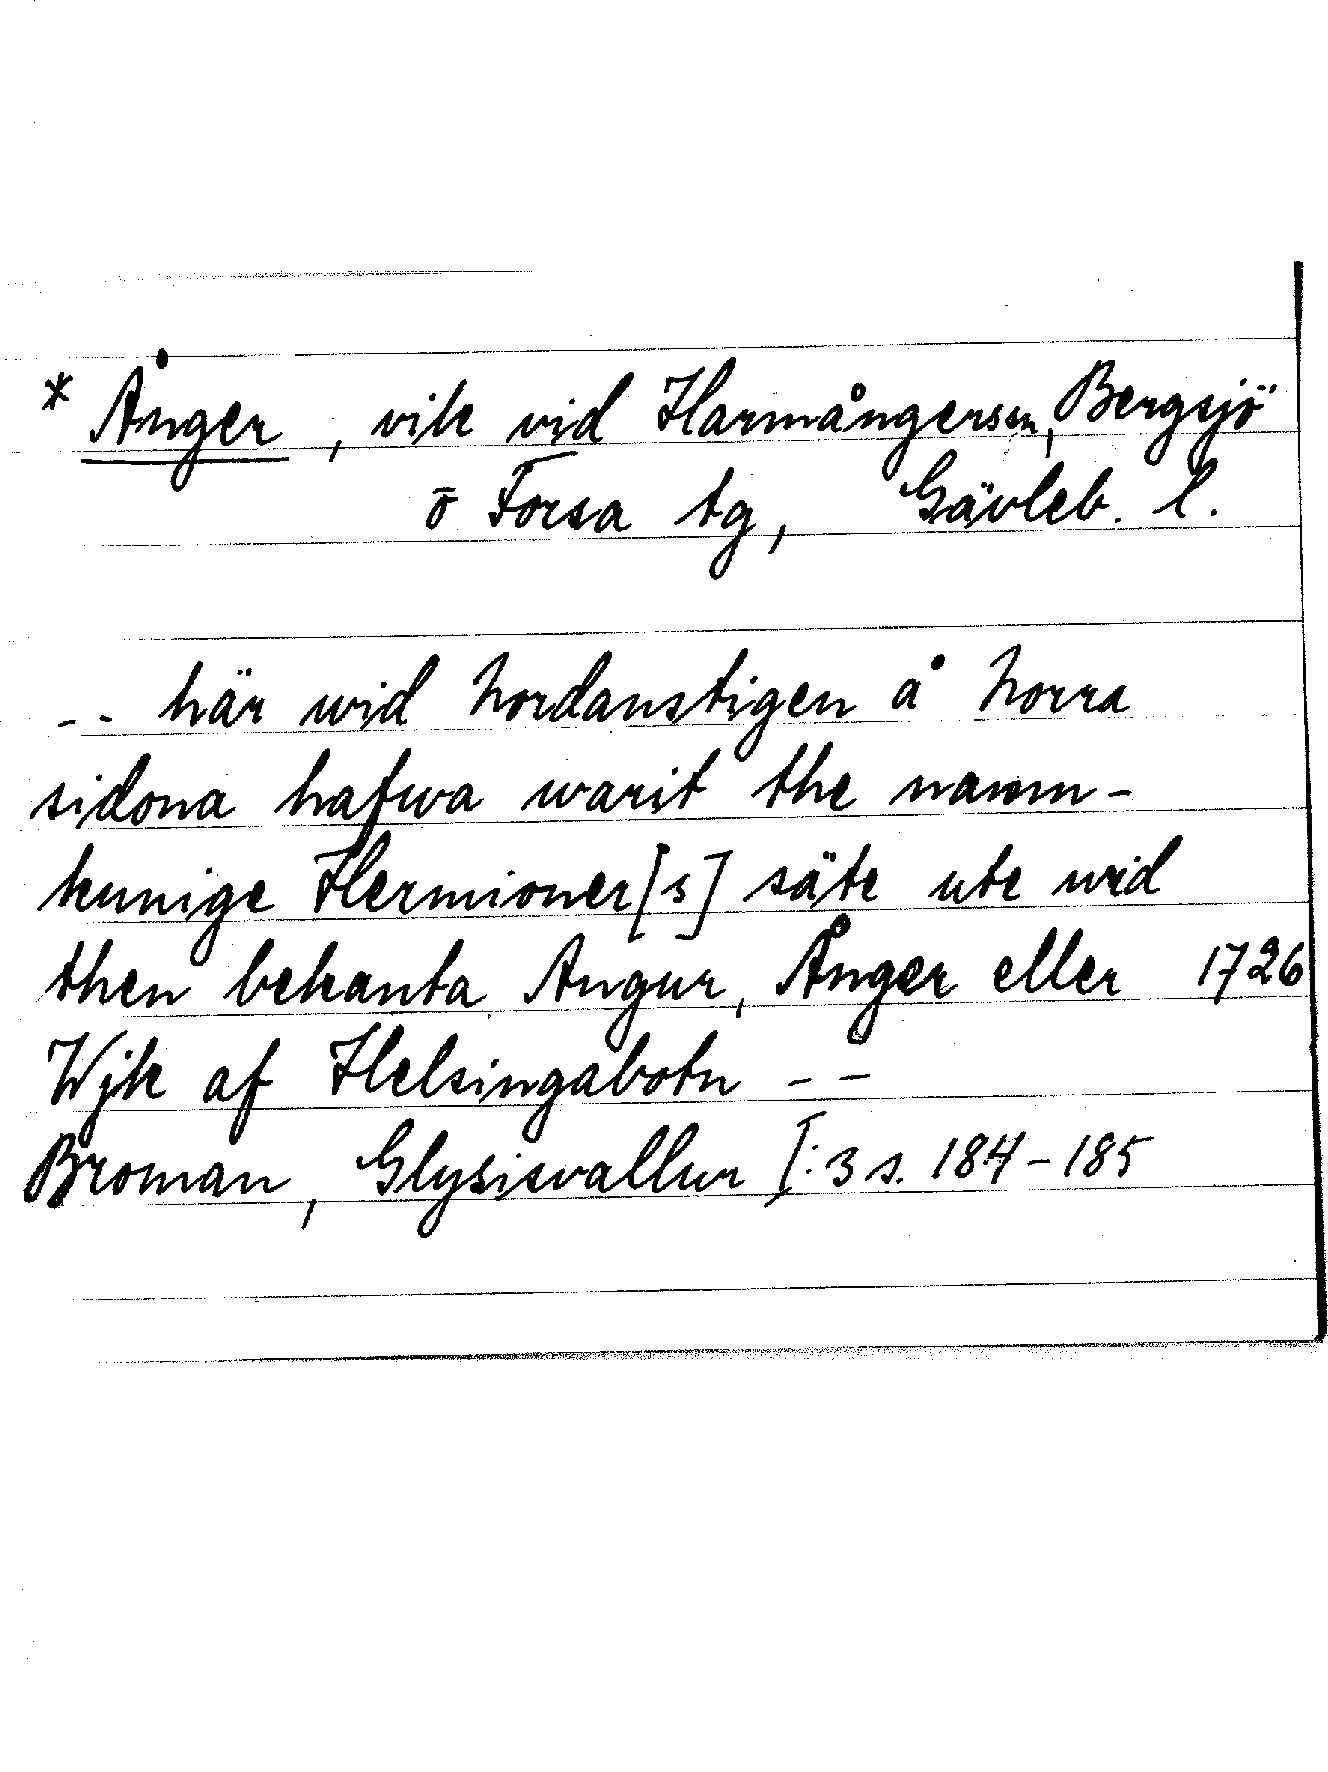 * Ånger, vik vid Harmångersån, Bergsjö
o Forsa tg, Gävleb. l.
-- här wid Nordanstigen å Norra
sidona hafwa warit the namn-
kunige Hermioner[s] säte ute wid
then bekanta Angur, Ånger eller 1726
Wjk af Helsingabotn --
Broman, Glysisvallur I:3 s. 184-185